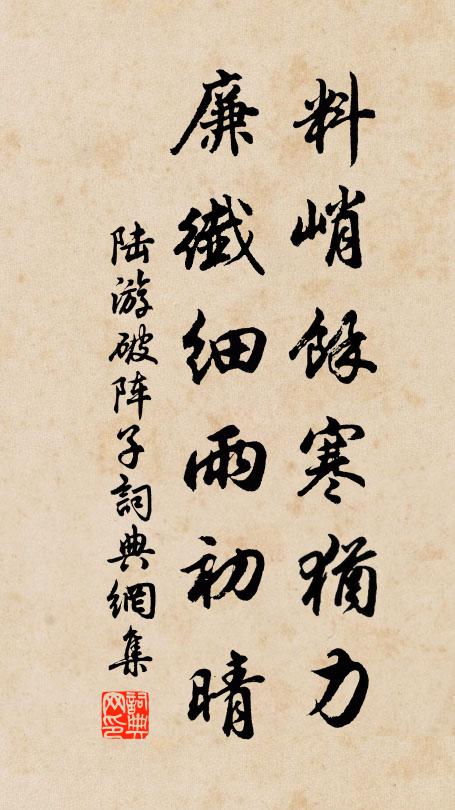 料峭餘寒猶力
廉纖細雨初晴
陆游破阵子詞典網集
詞典网印